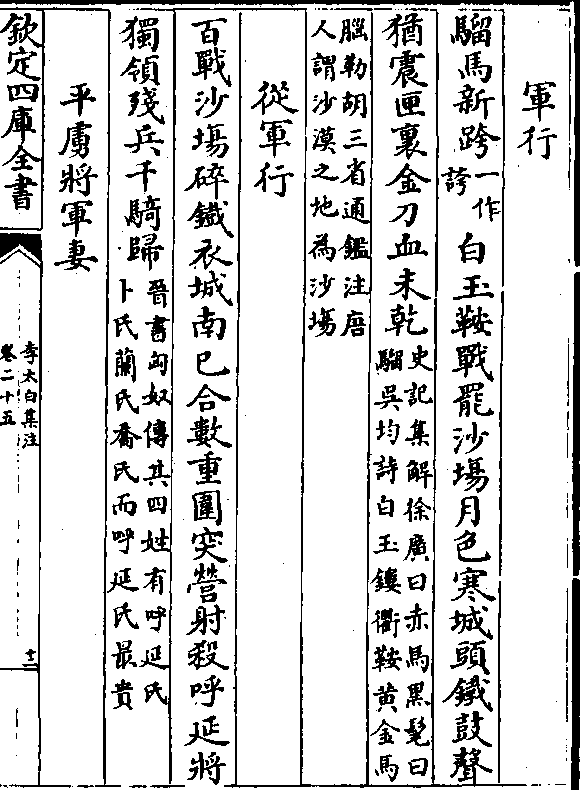 軍行
騮馬新跨一作誇白玉鞍戰罷沙塲月色寒城頭鐵鼓聲
猶震匣裏金刀血未乾史記集解徐廣曰赤馬黑髦曰
騮吳均詩白玉鏤衢鞍黄金馬
腦勒胡三省通鑑注唐
人謂沙漠之地為沙塲
從軍行
百戰沙塲碎鐵衣城南已合數重圍突營射殺呼延將
獨領殘兵千騎歸晉書匈奴傳其四姓有呼延氏
卜氏蘭氏喬氏而呼延氏最貴
平虜將軍妻
欽定四庫全書
李太白集注
卷二十五
十二